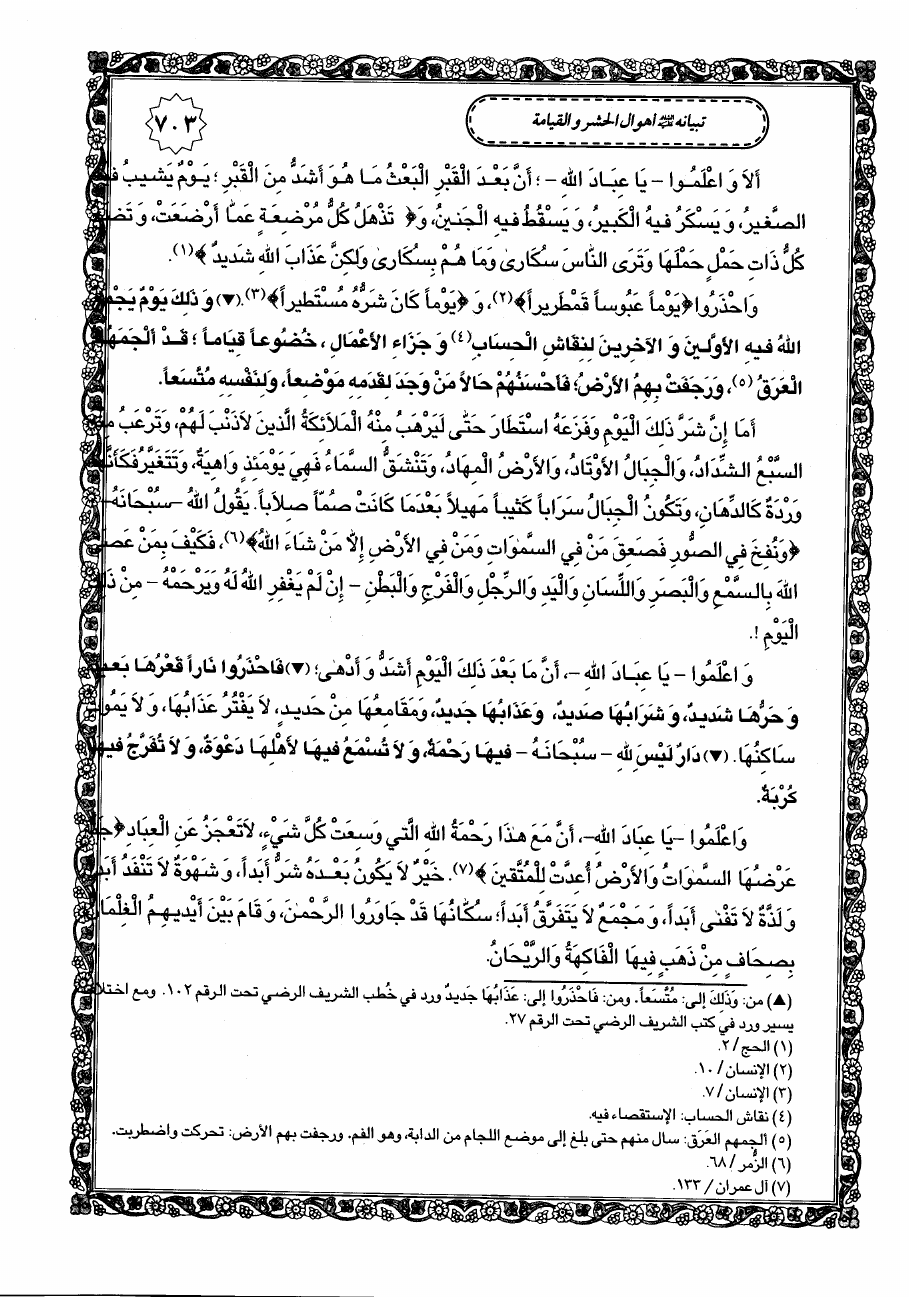 تبيانه ﷺ أهوال الحشر والقيامة
٧٠٣
أَلاَ وَ اعْلَمُوا – يَا عِبَـادَ اللهِ – ؛ أَنَّ بَعْـدَ الْقَبْرِ الْبَعْثُ مَـا هُـوَ أَشَدُّ مِنَ الْقَبْرِ ؛ يَـوْمٌ يَشيبُ
الصَّغيرُ، وَ يَسْكَرُ فيهِ الْكَبيرُ، وَ يَسْقُطُ فيهِ الْجَنينُ، وَ﴿ تَذْهَلُ كُلُّ مُرْضِعَةٍ عَمَّا أَرْضَعَتْ، وَ
كُلُّ ذَاتِ حَمْلٍ حَمْلَهَا وَتَرَى النَّاسَ سكَارىٰ وَمَا هُمْ بِسكَارىٰ وَلكِنَّ عَذَابَ اللهِ شَديدٌ ﴾(١).
وَاحْذَرُوا﴿يَوْماً عَبُوساً قَمْطَريراً﴾(٢)، وَ ﴿يَوْماً كَانَ شَرُّهُ مُسْتَطيراً﴾(٣).(▼) وَ ذلِكَ يَوْمٌ
اللهُ فيهِ الأَوَّلينَ وَ الآخِرينَ لِنِقَاشِ الْحِسَابِ(٤) وَ جَزَاءِ الأَعْمَالِ ، خُضُوعـاً قِيَاماً ؛ قَـدْ أَلْجَمَهُمُ
الْعَرَقُ (٥) ، وَرَجَفَتْ بِهِمُ الأَرْضُ؛ فَأَحْسَنُهُمْ حَالاً مَنْ وَجَدَ لِقَدَمِهِ مَوْضِعاً، وَلِنَفْسِهِ مُتَّسَعاً.
أَمَا إِنَّ شَرَّ ذلِكَ الْيَوْمِ وَفَزَعَهُ اسْتَطَارَ حَتّى لَيَرْهَبُ مِنْهُ الْمَلاَئِكَةُ الَّذينَ لاَذَنْبَ لَهُمْ، وَتَرْعَبُ
السَّبْعُ الشِّدَادُ، وَالْجِبَالُ الأَوْتَادُ، وَالأَرْضُ الْمِهَادُ، وَتَنْشَقُّ السَّمَاءُ فَهِيَ يَوْمَئِذٍ وَاهِيَةٌ، وَتَتَغَيَّرُ فَكَأَنَّهَا
وَرْدَةٌ كَالدِّهَانِ، وَتَكُونُ الْجِبَالُ سَرَاباً كَثيباً مَهيلاً بَعْدَمَا كَانَتْ صُمّاً صِلاَباً. يَقُولُ اللهُ –سُبْحَانَهُ–
﴿وَنُفِخَ فِي الصُّورِ فَصَعِقَ مَنْ فِي السَّموَاتِ وَمَنْ فِي الأَرْضِ إِلاَّ مَنْ شَاءَ اللهُ﴾(٦)، فَكَيْفَ بِمَنْ
اللهَ بِالسَّمْعِ وَالْبَصَرِ وَاللِّسَانِ وَالْيَدِ وَالرِّجْلِ وَالْفَرْجِ وَالْبَطْنِ – إِنْ لَمْ يَغْفِرِ اللهُ لَهُ وَيَرْحَمْهُ – مِنْ
الْيَوْمِ !.
وَ اعْلَمُوا – يَا عِبَـادَ اللهِ –، أَنَّ مَا بَعْدَ ذلِكَ الْيَوْمِ أَشَدُّ وَ أَدْهى؛ (▼)فَاحْذَرُوا نَاراً قَعْرُهَا
وَ حَرُّهَا شَديدٌ، وَ شَرَابُهَا صَديدٌ، وَعَذَابُهَا جَديدٌ، وَمَقَامِعُهَا مِنْ حَديدٍ، لاَ يَفْتُرُ عَذَابُهَا، وَ لاَ
سَاكِنُهَا. (▼) دَارٌ لَيْسَ لِلهِ – سُبْحَانَهُ – فيهَا رَحْمَةٌ، وَ لاَ تُسْمَعُ فيهَا لأَهْلِهَا دَعْوَةٌ، وَ لاَ تُفَرَّجُ فيهَا
كُرْبَةٌ.
وَاعْلَمُوا –يَا عِبَادَ اللهِ–، أَنَّ مَعَ هذَا رَحْمَةُ اللهِ الَّتي وَسِعَتْ كُلَّ شَيْءٍ، لاَتَعْجَزُ عَنِ الْعِبَادِ
عَرْضُهَا السَّموَاتُ وَالأَرْضُ أُعِدَّتْ لِلْمُتَّقينَ ﴾(٧). خَيْرٌ لاَ يَكُونُ بَعْدَهُ شَرٌّ أَبَداً، وَ شَهْوَةٌ لاَ تَنْفَدُ
وَ لَذَّةٌ لاَ تَفْنى أَبَداً، وَ مَجْمَعٌ لاَ يَتَفَرَّقُ أَبَداً؛ سُكَّانُهَا قَدْ جَاوَرُوا الرَّحْمنَ، وَ قَامَ بَيْنَ أَيْديهِمُ الْغِلْمَانُ
بِصِحَافٍ مِنْ ذَهَبٍ فيهَا الْفَاكِهَةُ وَالرَّيْحَانُ.
(▲) من: وَذلِكَ إلى: مُتَّسَعاً. ومن: فَاحْذَرُوا إلى: عَذَابُهَا جَديدٌ ورد في خُطب الشريف الرضي تحت الرقم ١٠٢. ومع
يسير ورد في كتب الشريف الرضي تحت الرقم ٢٧.
(١) الحج / ٢.
(٢) الإنسان / ١٠.
(٣) الإنسان / ٧.
(٤) نقاش الحساب: الإستقصاء فيه.
(٥) ألجمهم العَرَق: سال منهم حتى بلغ إلى موضع اللجام من الدابة، وهو الفم. ورجفت بهم الأرض: تحركت واضطربت.
(٦) الزُّمر / ٦٨.
(٧) آل عمران / ١٣٣.